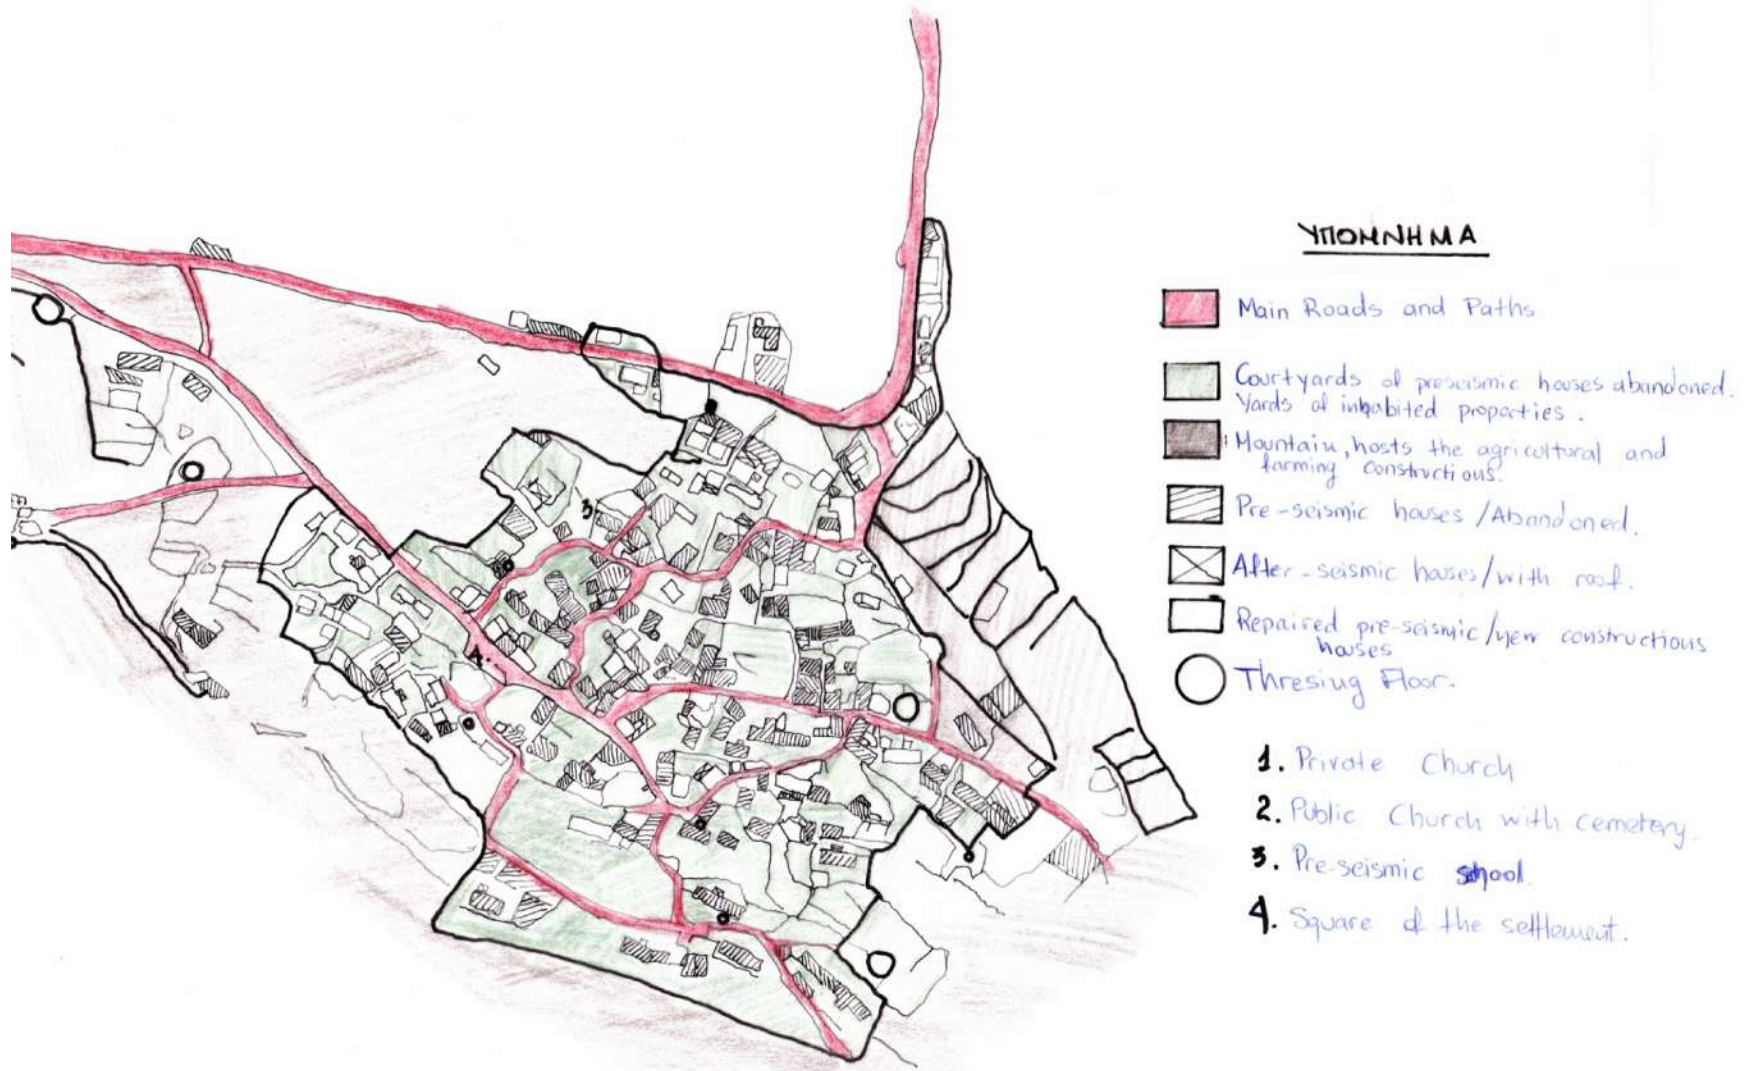 3
4.
ΥΠΟΜΝΗΜΑ
Main Roads and Paths
Courtyards of preseismic houses abandoned.
Yards of inhabited properties.
Mountain, hosts the agricultural and
farming constructions.
Pre-seismic houses / Abandoned.
After-seismic houses/with roof.
Repaired pre-seismic/new constructions
houses
Thresing Floor.
1. Private Church
2. Public Church with cemetery.
3. Pre-seismic school
4. Square of the settlement.